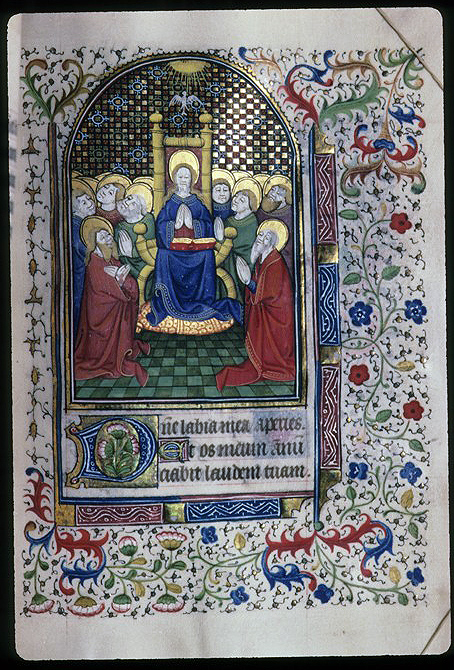 Dñe labia mea aperies.
Et os meum ãnũ
ciabit laudem tuam.